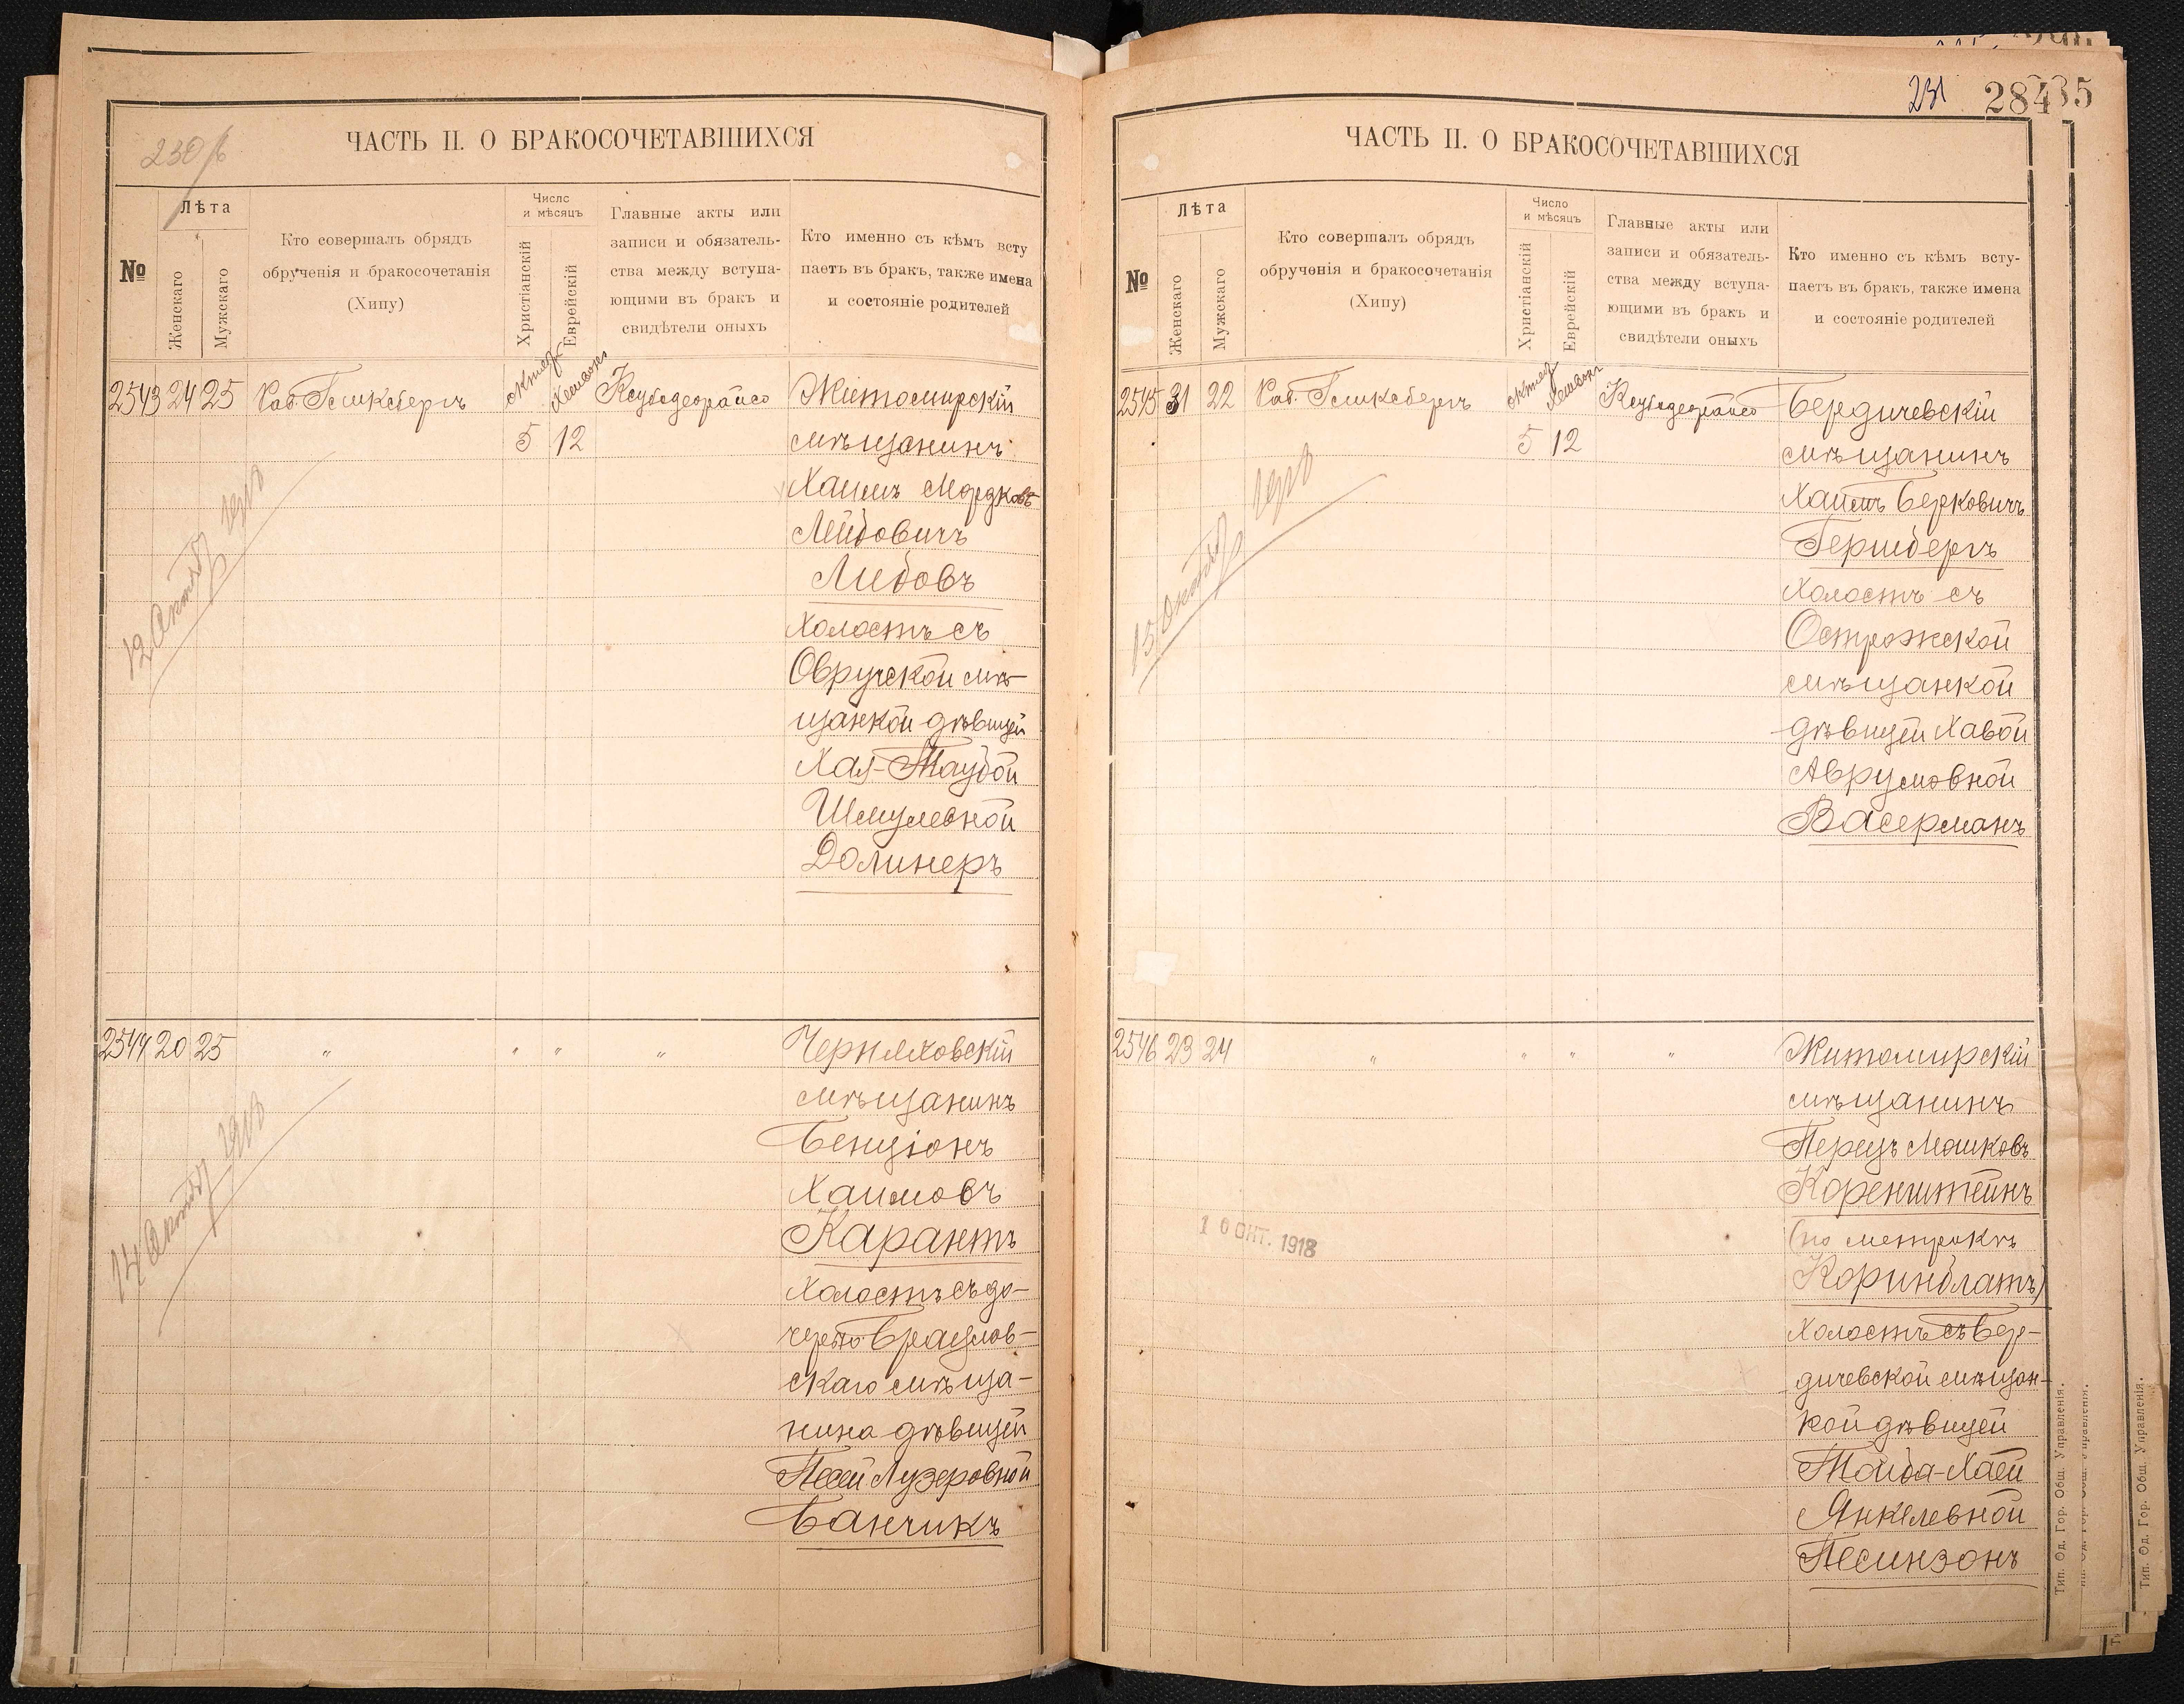 230
ЧАСТЬ II. О БРАКОСОЧЕТАВШИХСЯ
№
Лѣта
Женскаго
Мужскаго
Кто совершалъ обрядъ
обрученія и бракосочетанія
(Хипу)
Число
и мѣсяцъ
Христіанскій
Еврейскій
Главные акты или
записи и обязатель-
ства между вступа-
ющими въ бракъ и
свидѣтели оныхъ
Кто именно съ кѣмъ всту
паетъ въ бракъ, также имена
и состояніе родителей
2543 24 25
Раб. Гликсбергъ
5 12
Житомирскій
мѣщанинъ
Хаимъ Мордковъ
Лейбовичъ
Либовъ
холостъ съ
Овручской мѣ-
щанкой дѣвицей
Хая-Таубой
Шмулевной
Долинеръ
12 Октяб 1918
2544 20 25 " " " "
Черняховскій
мѣщанинъ
Бенціонъ
Хаимовъ
Карантъ
холостъ съ до-
черью Брацлов-
скаго мѣща-
нина дѣвицей
Песей Лузеровной
Банчикъ
14 Октяб 1918
231 284 35
ЧАСТЬ II. О БРАКОСОЧЕТАВШИХСЯ
№
Лѣта
Женскаго
Мужскаго
Кто совершалъ обрядъ
обрученія и бракосочетанія
(Хипу)
Число
и мѣсяцъ
Христіанскій
Еврейскій
Главные акты или
записи и обязатель-
ства между вступа-
ющими въ бракъ и
свидѣтели оныхъ
Кто именно съ кѣмъ всту-
паетъ въ бракъ, также имена
и состояніе родителей
2545 31 22
Раб. Гликсбергъ
5 12
Бердичевскій
мѣщанинъ
Хаимъ Берковичъ
Гершбергъ
холостъ съ
Острожской
мѣщанкой
дѣвицей Хавой
Аврумовной
Васерманъ
15 Октяб 1918
2546 23 24 " " " "
Житомирскій
мѣщанинъ
Перецъ Мошковъ
Коренштейнъ
(по метрикѣ
Коринблатъ)
холостъ съ Бер-
дичевской мѣщан-
кой дѣвицей
Тойба-Хаей
Янкелевной
Песинзонъ
10 ОКТ. 1918
Тип. Од. Гор. Общ. Управленія.
Тип. Од. Гор. Общ. Управленія.